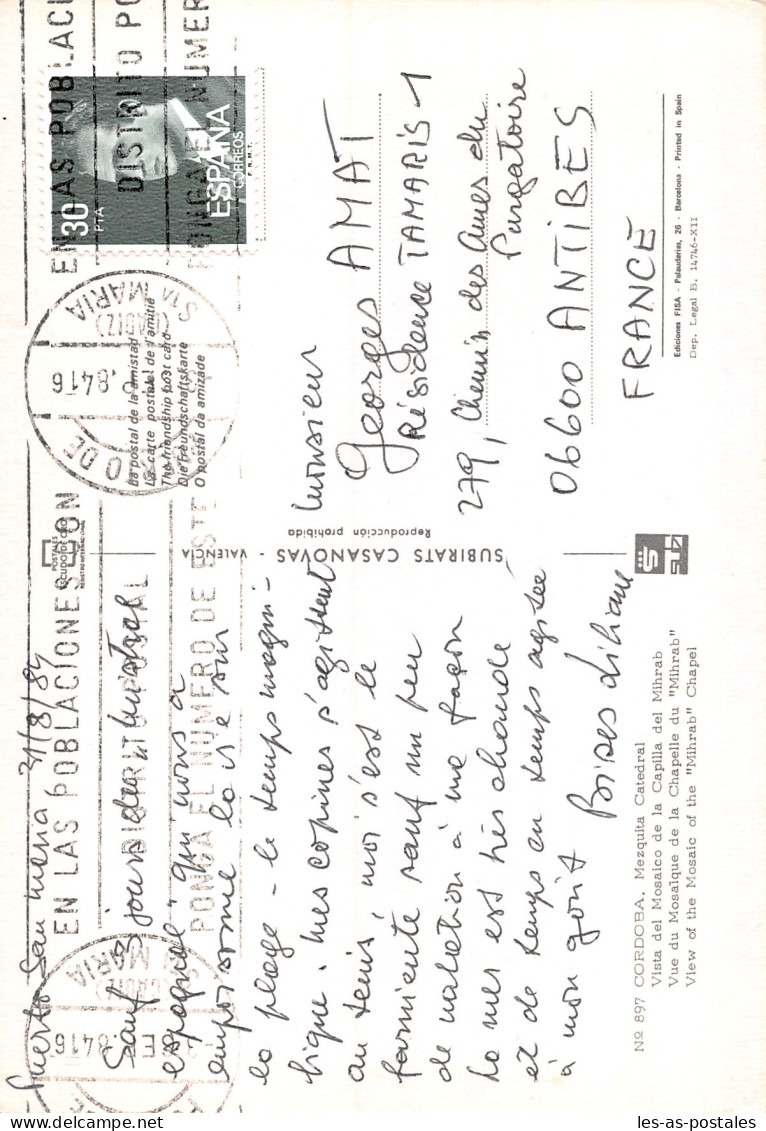 Puerto San Maria 21/8/84
Sauf 3 jours du "mistral
espagnol" qui nous a
empoisonné la vie sur
la plage - le temps magni-
fique. Mes copines s'agitent
au tenis, moi s'est le
farniente sauf un peu
de natation à ma façon
La mer est très chaude
et de temps en temps agitée
à mon goût Bises Liliane
Monsieur
Georges AMAT
Résidence TAMARIS 1
279, Chemin des Ames du
Purgatoire
06600 ANTIBES
FRANCE
30
PTA
ESPAÑA
CORREOS
F.N.M.T.
EN LAS POBLACIONES CON
DISTRITO POSTAL
PONGA EL NUMERO DE ESTE
EN LAS POBLACI
DISTRITO PO
PONGA EL NUMER
STA MARIA
(CADIZ)
8416
O DE
STA MARIA
(CADIZ)
8416
La postal de la amistad
La carte postale de l'amitié
The friendship post card
Die Freundschaftskarte
O postal da amizade
POSTALES
ESCUDO DE ORO
REGISTRO INTERNACIONAL
SUBIRATS CASANOVAS - VALENCIA
Reproducción prohibida
Nº 897 CORDOBA. Mezquita Catedral
Vista del Mosaico de la Capilla del Mihrab
Vue du Mosaïque de la Chapelle du "Mihrab"
View of the Mosaic of the "Mihrab" Chapel
Ediciones FISA - Palaudarias, 26 - Barcelona - Printed in Spain
Dep. Legal B. 14746-XII
les-as-postales